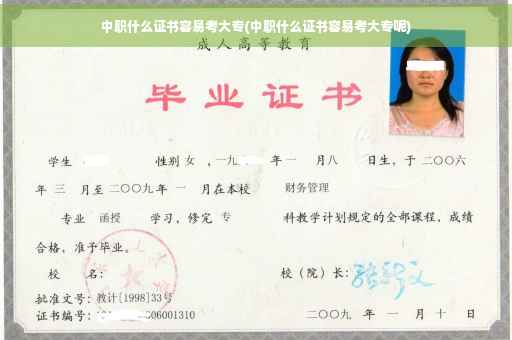 中职什么证书容易考大专(中职什么证书容易考大专呢)
成人高等教育
毕业证书
学生 性别 女 ，一九 年 一 月八 日生，于 二〇〇六
年 三 月至 二〇〇九 年 一 月在本校 财务管理
专业 函授 学习，修完 专 科教学计划规定的全部课程，成绩
合格，准予毕业。
校 名： 校（院）长：
批准文号：教计[1998]33号
证书编号： 06001310 二〇〇九 年 一 月 十 日